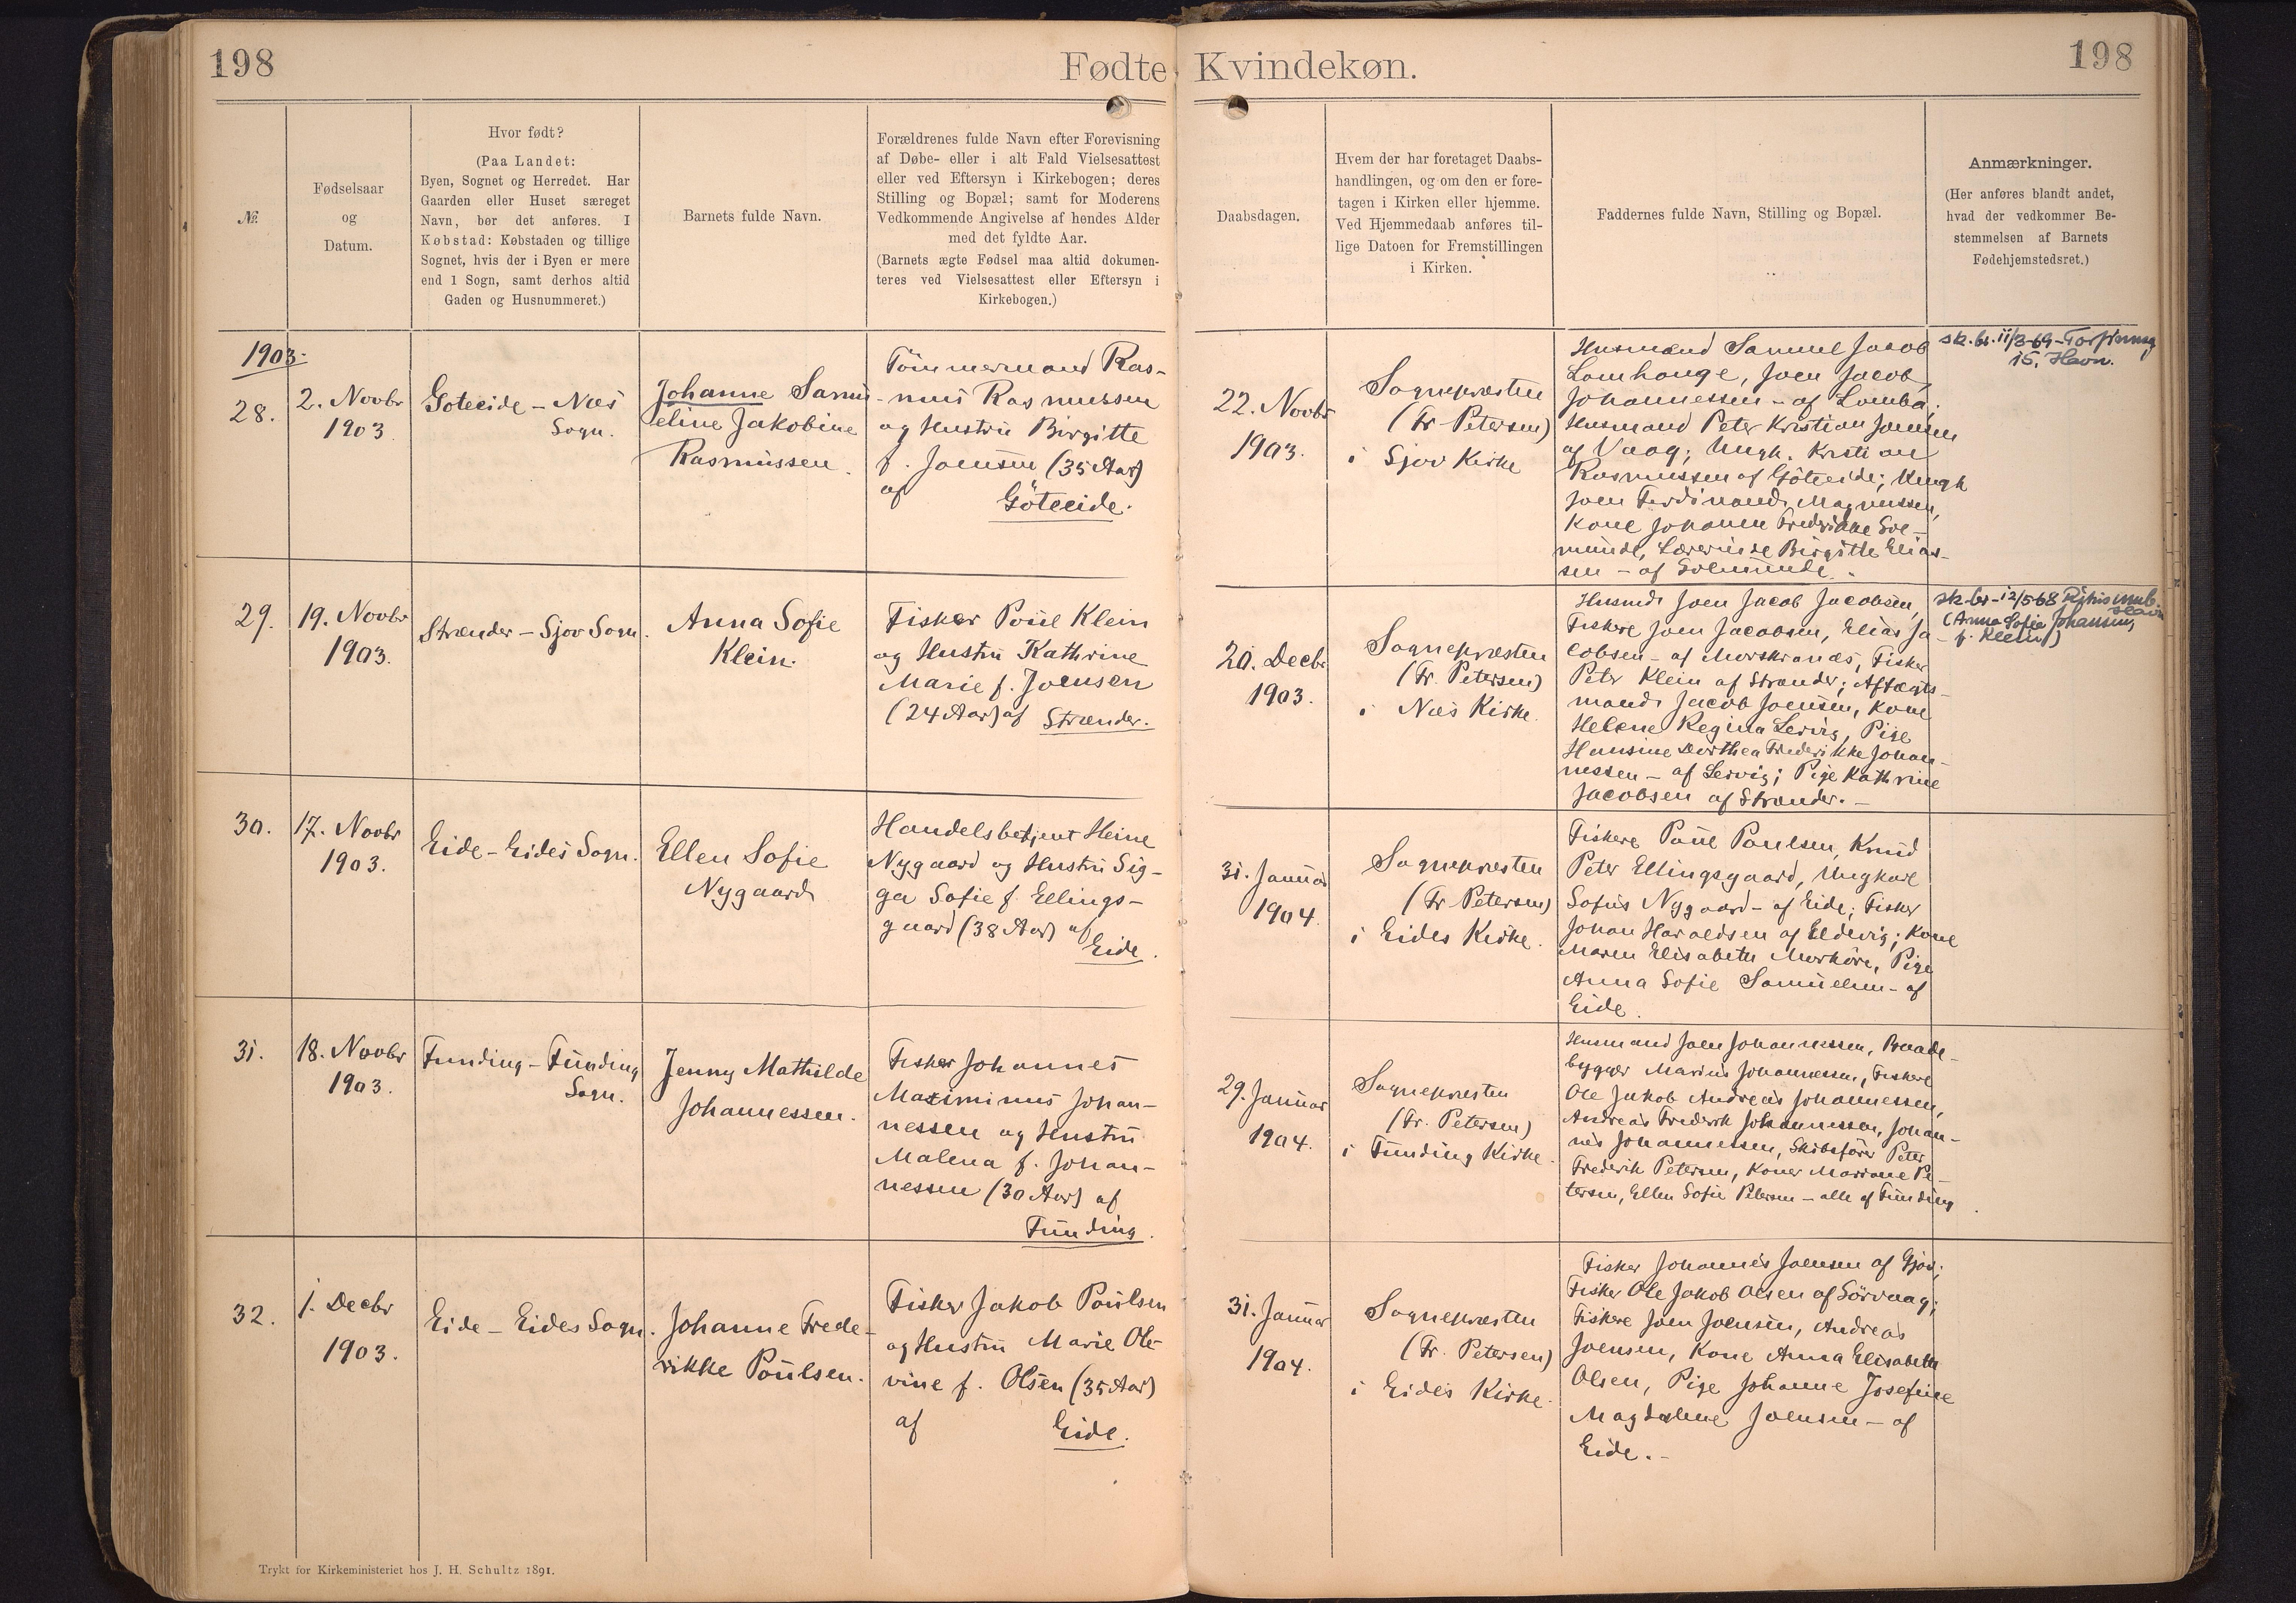 198
Fødte
Kvindekøn.
198
№
Fødselsaar
og
Datum.
Hvor født?
(Paa Landet:
Byen, Sognet og Herredet. Har
Gaarden eller Huset særeget
Navn, bør det anføres. I
Købstad: Købstaden og tillige
Sognet, hvis der i Byen er mere
end 1 Sogn, samt derhos altid
Gaden og Husnummeret.)
Barnets fulde Navn.
Forældrenes fulde Navn efter Forevisning
af Døbe- eller i alt Fald Vielsesattest
eller ved Eftersyn i Kirkebogen; deres
Stilling og Bopæl; samt for Moderens
Vedkommende Angivelse af hendes Alder
med det fyldte Aar.
(Barnets ægte Fødsel maa altid dokumen-
teres ved Vielsesattest eller Eftersyn i
Kirkebogen.)
Daabsdagen.
Hvem der har foretaget Daabs-
handlingen, og om den er fore-
tagen i Kirken eller hjemme.
Ved Hjemmedaab anføres til-
lige Datoen for Fremstillingen
i Kirken.
Faddernes fulde Navn, Stilling og Bopæl.
Anmærkninger.
(Her anføres blandt andet,
hvad der vedkommer Be-
stemmelsen af Barnets
Fødehjemstedsret.)
1903-
28.
2. Novbr
1903.
Goteeide - Næs
Sogn.
Johanne Samu-
eline Jakobine
Rasmussen.
Tömmermand Ras-
mus Rasmussen
og Hustru Birgitte
f. Joensen (35 Aar)
af
Göteeide.
22. Novbr
1903.
Sognepræsten
(Fr. Petersen)
i Sjov Kirke
Husmand Samuel Jacob
Lamhauge, Joen Jacob
Johannessen - af Lamba;
Husmand Peter Kristian Joensen
af Vaag; Ungk. Kristian
Rasmussen af Göteeide; Ungk
Joen Ferdinand Magnussen,
Kone Johanne Frederikke Sol-
munde, Lærerinde Birgitte Elias-
sen - af Solmunde. -
sk. br. 11/3-69 - Torfinnsg
15, Havn.
29.
19. Novbr
1903.
Strænder - Sjov Sogn.
Anna Sofie
Klein.
Fisker Poul Klein
og Hustru Kathrine
Marie f. Joensen
(24 Aar) af Strænder.
20. Decbr
1903.
Sognepræsten
(Fr. Petersen)
i Næs Kirke.
Husmd. Joen Jacob Jacobsen,
Fiskere Joen Jacobsen, Elias Ja-
cobsen - af Morskranæs, Fisker
Peter Klein af Strænder; Aftægts-
mand Jacob Joensen, Kone
Helene Regina Lervig, Pige
Hansine Dorthea Frederikke Johan-
nessen - af Lervig; Pige Kathrine
Jacobsen af Strænder. -
sk. br - 12/5-68
(Anna Sofie Johansen,
f. Klein)
30.
17. Novbr
1903.
Eide - Eides Sogn.
Ellen Sofie
Nygaard
Handelsbetjent Heine
Nygaard og Hustru Sig-
ga Sofie f. Ellings-
gaard (38 Aar) af
Eide.
31. Januar
1904.
Sognepræsten
(Fr. Petersen)
i Eides Kirke.
Fiskere Poul Poulsen, Knud
Peter Ellingsgaard, Ungkarl
Sofus Nygaard - af Eide; Fisker
Johan Haraldsen af Eldevig; Kone
Maren Elisabeth Morköre, Pige
Anna Sofie Samuelsen - af
Eide.
31.
18. Novbr
1903.
Funding - Funding
Sogn.
Jenny Mathilde
Johannessen.
Fisker Johannes
Maximinus Johan-
nessen og Hustru
Malena f. Johan-
nessen (30 Aar) af
Funding.
29. Januar
1904.
Sognepræsten
(Fr. Petersen)
i Funding Kirke.
Husmand Joen Johannessen, Baade-
bygger Marius Johannessen, Fiskere
Ole Jakob Andreas Johannessen,
Andreas Frederik Johannessen, Johan-
nes Johannessen, Skibsförer Peter
Frederik Petersen, Koner Mariane Pe-
tersen, Ellen Sofie Petersen - alle af Funding.
32.
1. Decbr
1903.
Eide - Eides Sogn.
Johanne Frede-
rikke Poulsen.
Fisker Jakob Poulsen
og Hustru Marie Ole-
vine f. Olsen (35 Aar)
af
Eide.
31. Januar
1904.
Sognepræsten
(Fr. Petersen)
i Eides Kirke.
Fisker Johannes Joensen af Gjov;
Fisker Ole Jakob Olsen af Sörvaag;
Fiskere Joen Joensen, Andreas
Joensen, Kone Anna Elisabeth
Olsen, Pige Johanne Josefine
Magdalene Joensen - af
Eide. -
Trykt for Kirkeministeriet hos J. H. Schultz 1891.